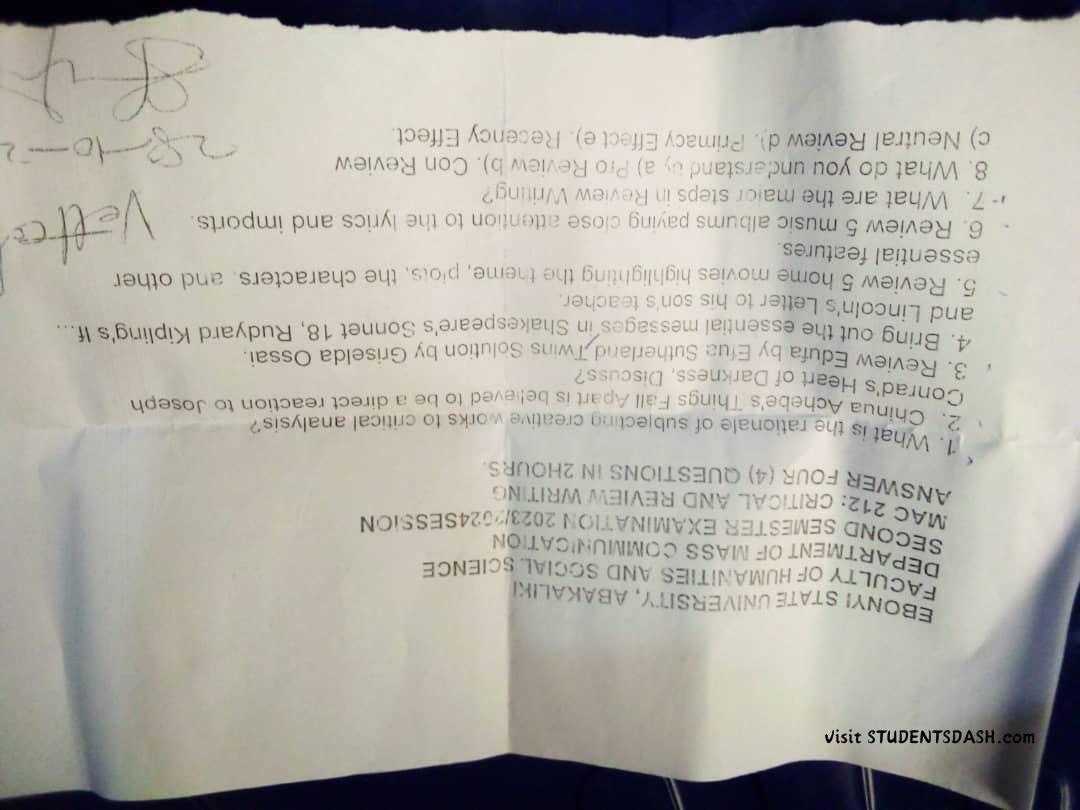 EBONYI STATE UNIVERSITY, ABAKALIKI
FACULTY OF HUMANITIES AND SOCIAL SCIENCE
DEPARTMENT OF MASS COMMUNICATION
SECOND SEMESTER EXAMINATION 2023/2024SESSION
MAC 212: CRITICAL AND REVIEW WRITING
ANSWER FOUR (4) QUESTIONS IN 2HOURS.
1. What is the rationale of subjecting creative works to critical analysis?
2. Chinua Achebe's Things Fall Apart is believed to be a direct reaction to Joseph
Conrad's Heart of Darkness, Discuss?
3. Review Edufa by Efua Sutherland Twins Solution by Griselda Ossai.
4. Bring out the essential messages in Shakespeare's Sonnet 18, Rudyard Kipling's If...
and Lincoln's Letter to his son's teacher.
5. Review 5 home movies highlighting the theme, plots, the characters and other
essential features.
6. Review 5 music albums paying close attention to the lyrics and imports.
7. What are the major steps in Review Writing?
8. What do you understand by a) Pro Review b). Con Review
c) Neutral Review d). Primacy Effect e). Recency Effect.
28-10-2
visit STUDENTSDASH.com